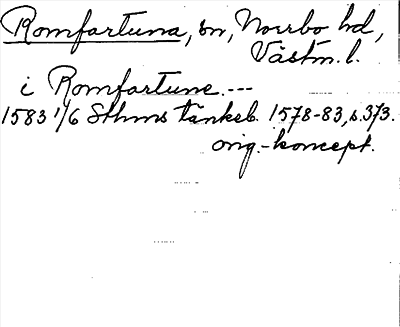 Romfartuna, sn, Norrbo hd,
Västm. l.
i Romfartune.---
1583 1/6 Sthms tänkeb. 1578-83, s. 373.
orig.-koncept.